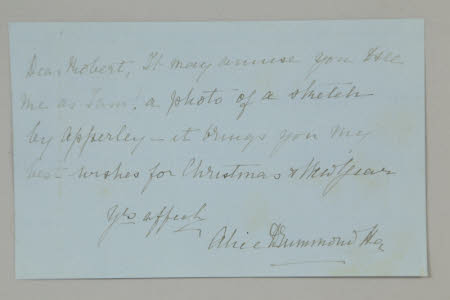 Dear Robert, It may amuse you to see
me as I am! a photo of a sketch
by Apperley – it brings you my
best wishes for Christmas & New Year
Yrs affecly
Alice Drummond Hay